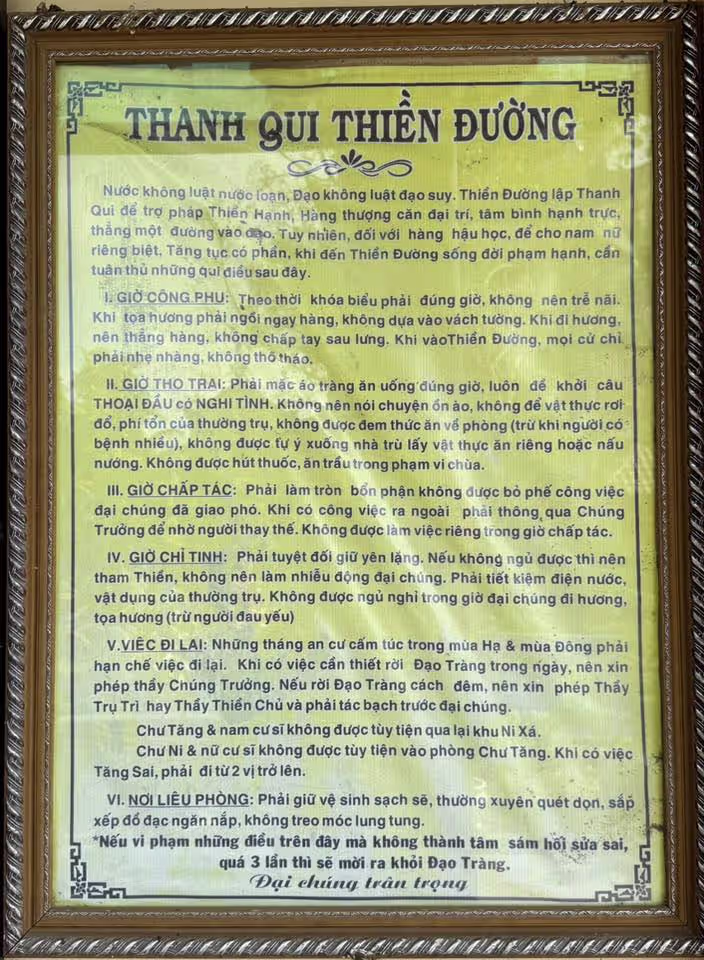 THANH QUI THIỀN ĐƯỜNG
Nước không luật nước loạn, Đạo không luật đạo suy. Thiền Đường lập Thanh
Qui để trợ pháp Thiền Hạnh, Hàng thượng căn đại trí, tâm bình hạnh trực,
thẳng một đường vào đạo. Tuy nhiên, đối với hàng hậu học, để cho nam nữ
riêng biệt, Tăng tục có phần, khi đến Thiền Đường sống đời phạm hạnh, cần
tuân thủ những qui điều sau đây.
I. GIỜ CÔNG PHU: Theo thời khóa biểu phải đúng giờ, không nên trễ nãi.
Khi tọa hương phải ngồi ngay hàng, không dựa vào vách tường. Khi đi hương,
nên thẳng hàng, không chấp tay sau lưng. Khi vàoThiền Đường, mọi cử chỉ
phải nhẹ nhàng, không thô tháo.
II. GIỜ THỌ TRAI: Phải mặc áo tràng ăn uống đúng giờ, luôn đề khởi câu
THOẠI ĐẦU có NGHI TÌNH. Không nên nói chuyện ồn ào, không để vật thực rơi
đổ, phí tổn của thường trụ, không được đem thức ăn về phòng (trừ khi người có
bệnh nhiều), không được tự ý xuống nhà trù lấy vật thực ăn riêng hoặc nấu
nướng. Không được hút thuốc, ăn trầu trong phạm vi chùa.
III. GIỜ CHẤP TÁC: Phải làm tròn bổn phận không được bỏ phế công việc
đại chúng đã giao phó. Khi có công việc ra ngoài phải thông qua Chúng
Trưởng để nhờ người thay thế. Không được làm việc riêng trong giờ chấp tác.
IV. GIỜ CHỈ TỊNH: Phải tuyệt đối giữ yên lặng. Nếu không ngủ được thì nên
tham Thiền, không nên làm nhiễu động đại chúng. Phải tiết kiệm điện nước,
vật dụng của thường trụ. Không được ngủ nghỉ trong giờ đại chúng đi hương,
tọa hương (trừ người đau yếu)
V.VIỆC ĐI LẠI: Những tháng an cư cấm túc trong mùa Hạ & mùa Đông phải
hạn chế việc đi lại. Khi có việc cần thiết rời Đạo Tràng trong ngày, nên xin
phép thầy Chúng Trưởng. Nếu rời Đạo Tràng cách đêm, nên xin phép Thầy
Trụ Trì hay Thầy Thiền Chủ và phải tác bạch trước đại chúng.
Chư Tăng & nam cư sĩ không được tùy tiện qua lại khu Ni Xá.
Chư Ni & nữ cư sĩ không được tùy tiện vào phòng Chư Tăng. Khi có việc
Tăng Sai, phải đi từ 2 vị trở lên.
VI. NƠI LIÊU PHÒNG: Phải giữ vệ sinh sạch sẽ, thường xuyên quét dọn, sắp
xếp đồ đạc ngăn nắp, không treo móc lung tung.
*Nếu vi phạm những điều trên đây mà không thành tâm sám hối sửa sai,
quá 3 lần thì sẽ mời ra khỏi Đạo Tràng.
Đại chúng trân trọng